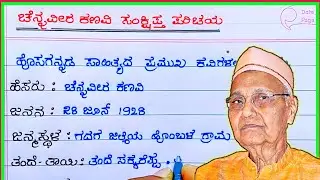 ಚೆನ್ನವೀರ ಕಣವಿ ಸಂಕ್ಷಿಪ್ತ ಪರಿಚಯ
ಹೊಸಗನ್ನಡ ಸಾಹಿತ್ಯದ ಪ್ರಮುಖ
ಹೆಸರು : ಚೆನ್ನವೀರ ಕಣವಿ
ಜನನ : 28 ಜೂನ್ 1928
ಜನ್ಮಸ್ಥಳ : ಗದಗ ಜಿಲ್ಲೆಯ ಹೊಂಬಳ ಗ್ರಾಮ
ತಂದೆ-ತಾಯಿ : ತಂದೆ ಸಕ್ಕರೆಪ್ಪ,